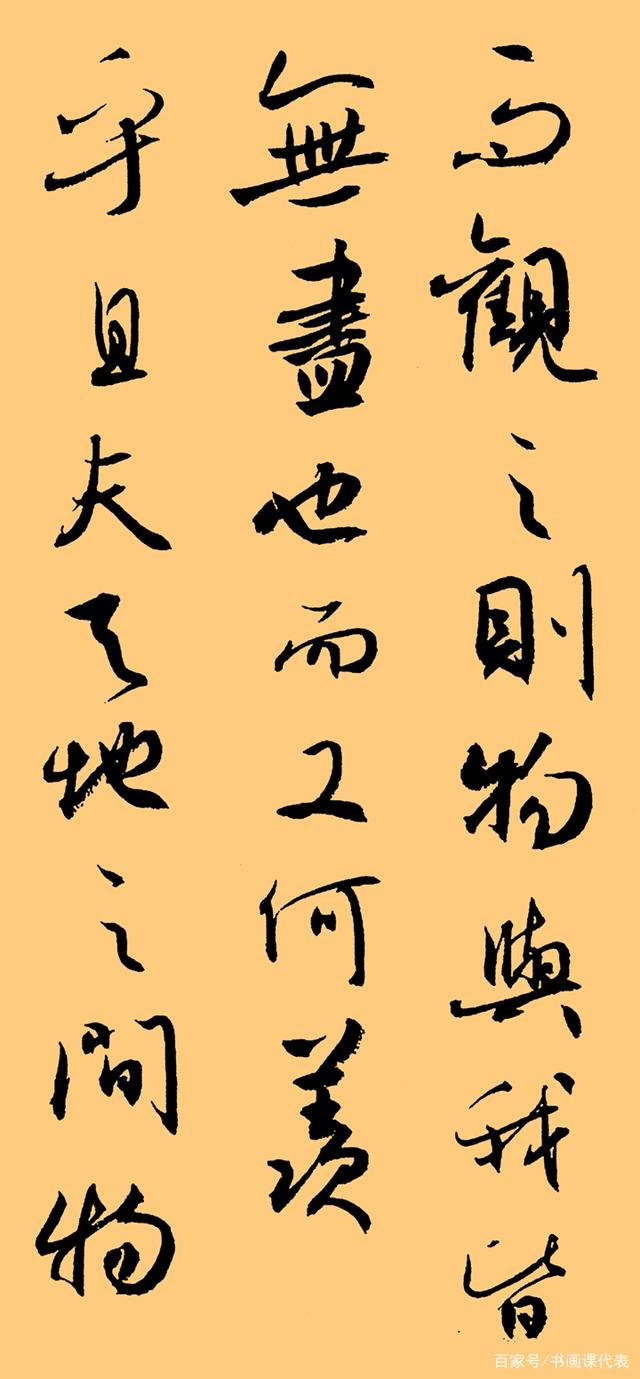 而觀之則物與我皆
無盡也而又何羨
乎且夫天地之間物
百家号/书画课代表